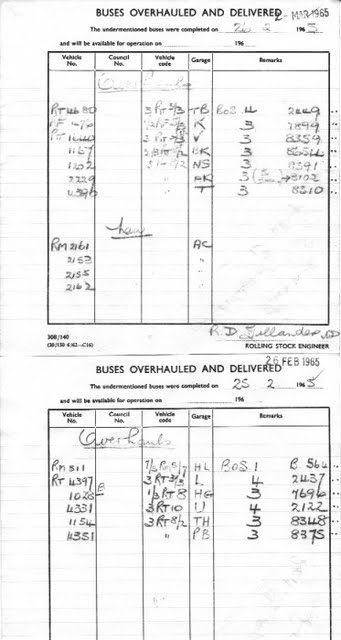 BUSES OVERHAULED AND DELIVERED 2- MAR 1965
The undermentioned buses were completed on 26 2 1965
and will be available for operation on 196
Vehicle No. Council No. Vehicle code Garage Remarks
Overhauls
RT 4680 3 RT 3/3 TB BOS. 4 2849
K 3 7899
3 8359
1167 BK 3 8554
1202 NS 3 8391
2229 " AK 3 8102
4396 " T 3 8510
New
RM 2161 AC
2153 "
2155 "
2162 "
R.D. Gillander
308/140 ROLLING STOCK ENGINEER
BUSES OVERHAULED AND DELIVERED 26 FEB 1965
The undermentioned buses were completed on 25 2 1965
and will be available for operation on 196
Vehicle No. Council No. Vehicle code Garage Remarks
Overhauls
RM 511 HL BOS. 1 B. 564
RT 4397 3 RT 3/3 L 4 2437
1028 B 1/3 RT 8 HG 3 7696
4331 3 RT 10 U 4 2122
1154 3 RT 8/2 TH 3 8348
4351 " PB 3 8375